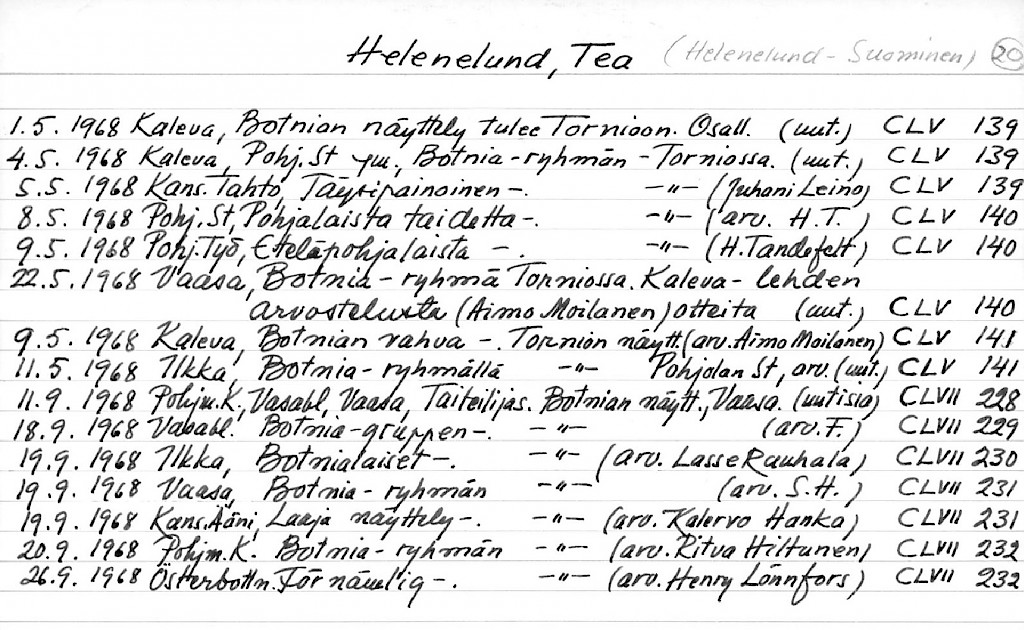 Helenelund, Tea (Helenelund - Suominen) 20
1.5. 1968 Kaleva, Botnian näyttely tulee Tornioon. Osall. (uut.) CLV 139
4.5. 1968 Kaleva, Pohj. St ym., Botnia-ryhmän - Torniossa. (uut.) CLV 139
5.5. 1968 Kans. Tahto, Täysipainoinen -. -"- (Juhani Leino) CLV 139
8.5. 1968 Pohj. St, Pohjalaista taidetta -. -"- (arv. H.T.) CLV 140
9.5. 1968 Pohj. Työ, Eteläpohjalaista -. -"- (H. Tandefelt) CLV 140
22.5. 1968 Vaasa, Botnia-ryhmä Torniossa. Kaleva-lehden
arvostelusta (Aimo Moilanen) otteita (uut.) CLV 140
9.5. 1968 Kaleva, Botnian vahva -. Tornion näytt. (arv. Aimo Moilanen) CLV 141
11.5. 1968 Ilkka, Botnia-ryhmällä -"- Pohjolan St, arv. (uut.) CLV 141
11.9. 1968 Pohjm. K., Vasabl, Vaasa, Taiteilijas. Botnian näytt., Vaasa. (uutisia) CLVII 228
18.9. 1968 Vasabl. Botnia-gruppen -. -"- (arv. F.) CLVII 229
19.9. 1968 Ilkka, Botnialaiset -. -"- (arv. Lasse Rauhala) CLVII 230
19.9. 1968 Vaasa, Botnia-ryhmän -"- (arv. S.H.) CLVII 231
19.9. 1968 Kans. Ääni, Laaja näyttely -. -"- (arv. Kalervo Hanka) CLVII 231
20.9. 1968 Pohjm. K. Botnia-ryhmän -"- (arv. Ritva Hiltunen) CLVII 232
26.9. 1968 Österbottn. Förnämlig -. -"- (arv. Henry Lönnfors) CLVII 232